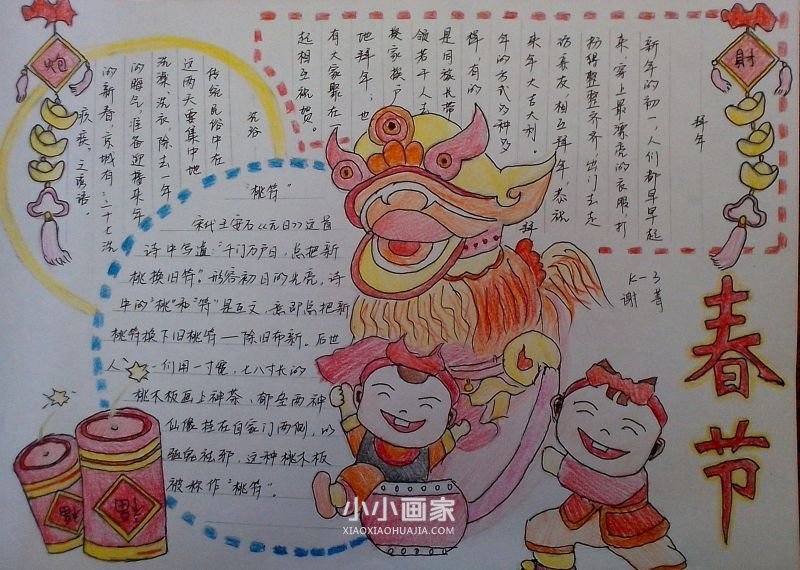 炮
財
拜年
新年的初一，人们都早早起
来，穿上最漂亮的衣服，打
扮得整整齐齐，出门去走
访亲友，相互拜年，恭祝
来年大吉大利。拜
年的方式多种多
样，有的
是同族长带
领若干人去
挨家挨户
地拜年；也
有大家聚在一
起相互祝贺。
沐浴
传统民俗中在
这两天要集中地
洗澡、洗衣，除去一年
的晦气，准备迎接来年
的新春，京城有二十七洗
"桃符"
宋代王安石《元日》这首
诗中写道："千门万户日，总把新
桃换旧符"。形容初日的光亮，诗
中的"桃"和"符"是互文，意即总把新
桃符换下旧桃符——除旧布新。后世
人们用一寸宽，七八寸长的
桃木板画上神荼、郁垒两神
仙像挂在自家门两侧，以
驱鬼祛邪，这种桃木板
被称作"桃符"。
K-3
谢菁
春节
福
福
小小画家
XIAOXIAOHUAJIA.COM